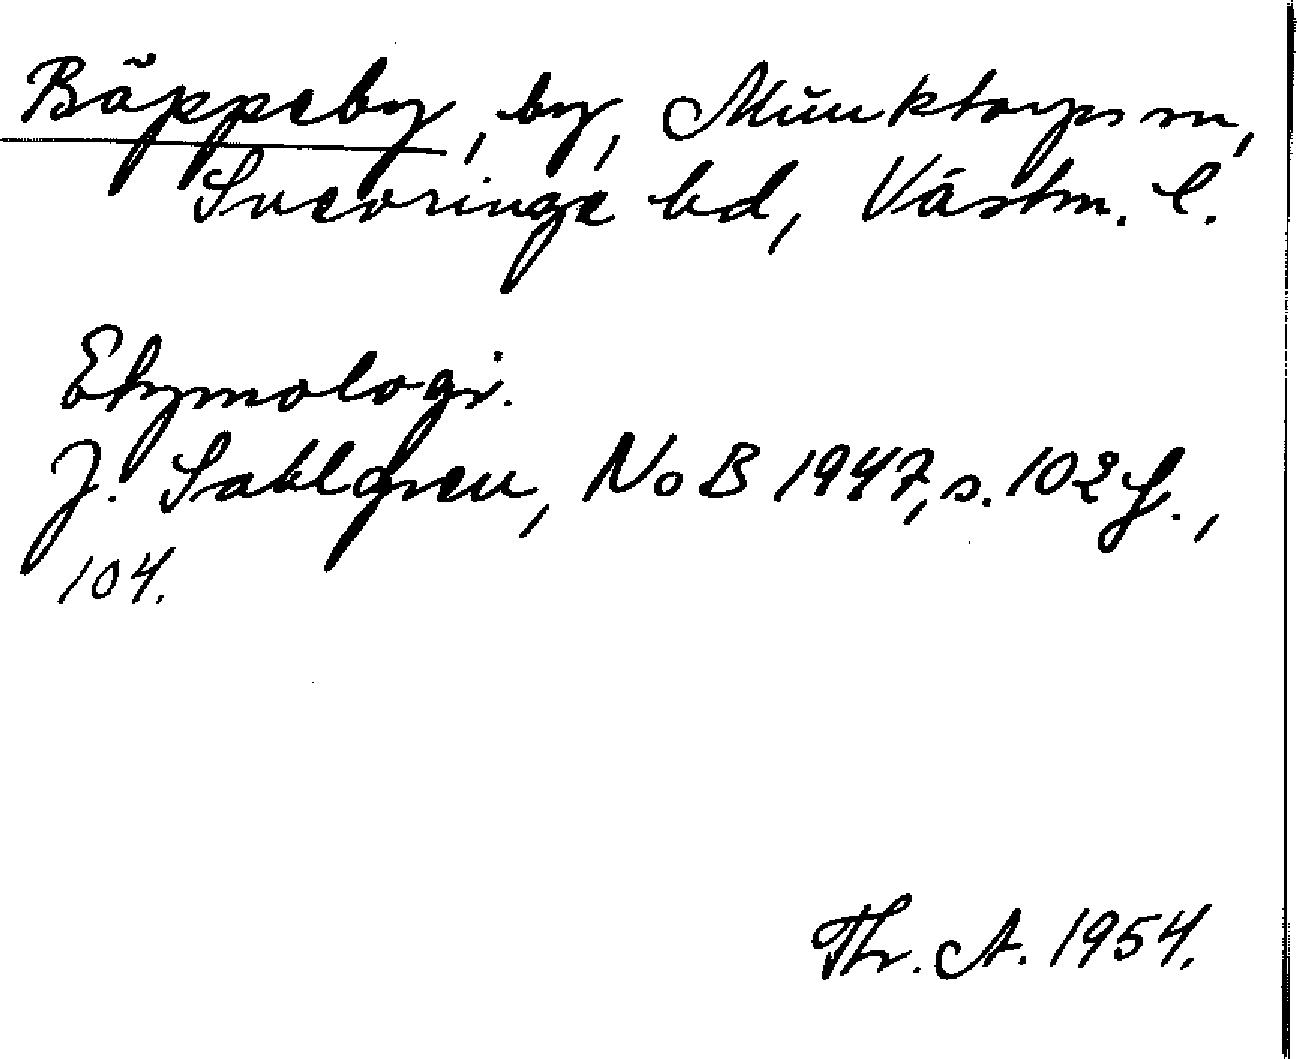 Bäppeby, by, Munktorps sn,
Snevringe hd, Västm. l.
Etymologi.
J. Sahlgren, NoB 1947, s. 102 f.,
104.
Th. A. 1954.